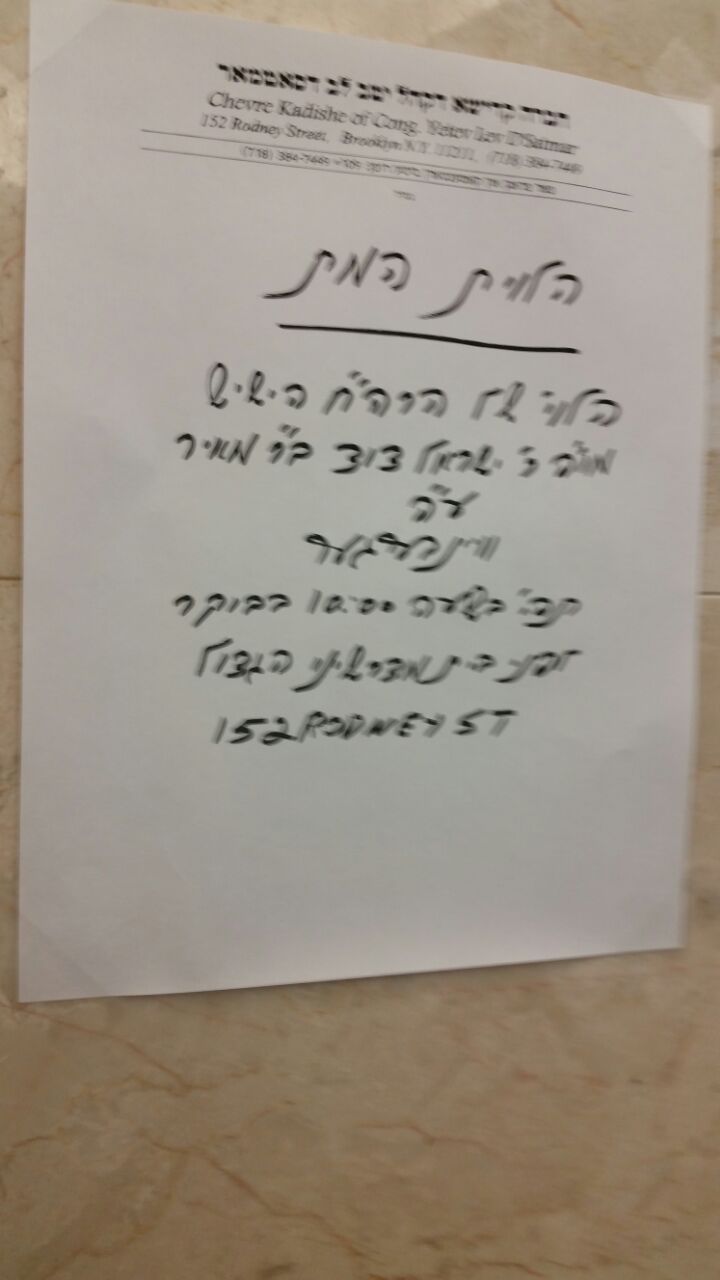 חברה קדישא דקהל יטב לב דסאטמאר
Chevre Kadishe of Cong. Yetev Lev D'Satmar
152 Rodney Street, Brooklyn N.Y. 11211, (718) 384-7449
(718) 384-7449
הלוית המת
הלוי' של הרה"ח הישיש
מוה"ר ר' ישראל דוד ב"ר מאיר
ע"ה
ווײנבערגער
בשעה 10:00 בבוקר
בית מדרשינו הגדול
152 RODNEY ST